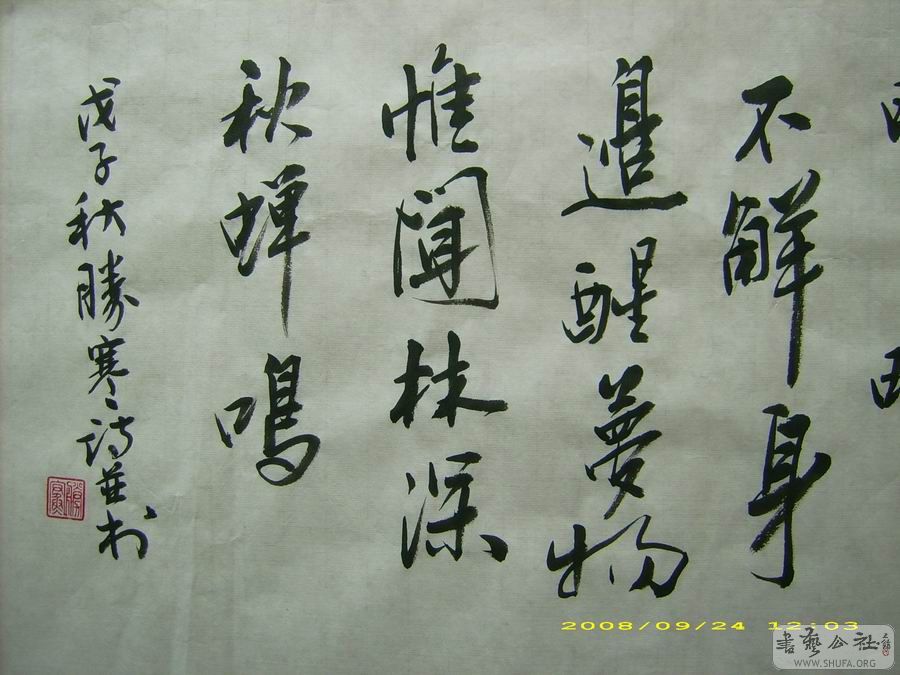 不解身
邉醒夢物
惟闻林深
秋蝉鳴
戊子秋勝寒诗並书
2008/09/24 12:03
書藝公社
WWW.SHUFA.ORG